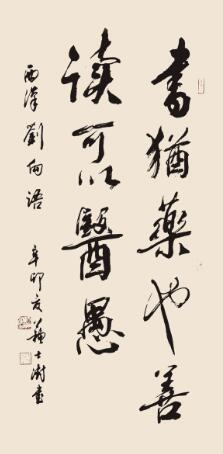 書猶藥也善
读可以醫愚
西漢劉向語
辛卯夏蘇士澍書